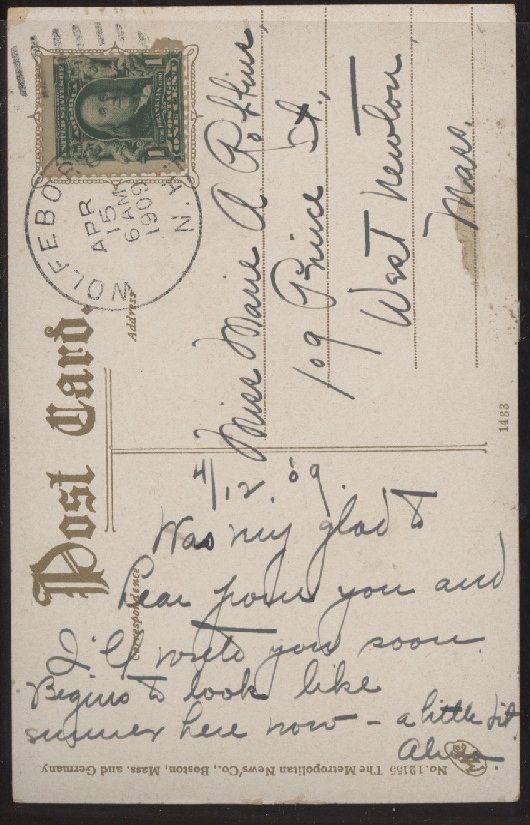 Post Card.
Correspondence
Address
WOLFEBORO
APR
15
6 AM
1909
N.H.
UNITED STATES OF AMERICA
FRANKLIN
1 ONE CENT 1
Miss Marie A Robbins,
109 Prince St.,
West Newton
Mass.
4/12. 09.
Was my glad to
hear from you and
I'll write you soon.
Begins to look like
summer here now - a little bit
No. 12155 The Metropolitan News Co., Boston, Mass. and Germany
1483